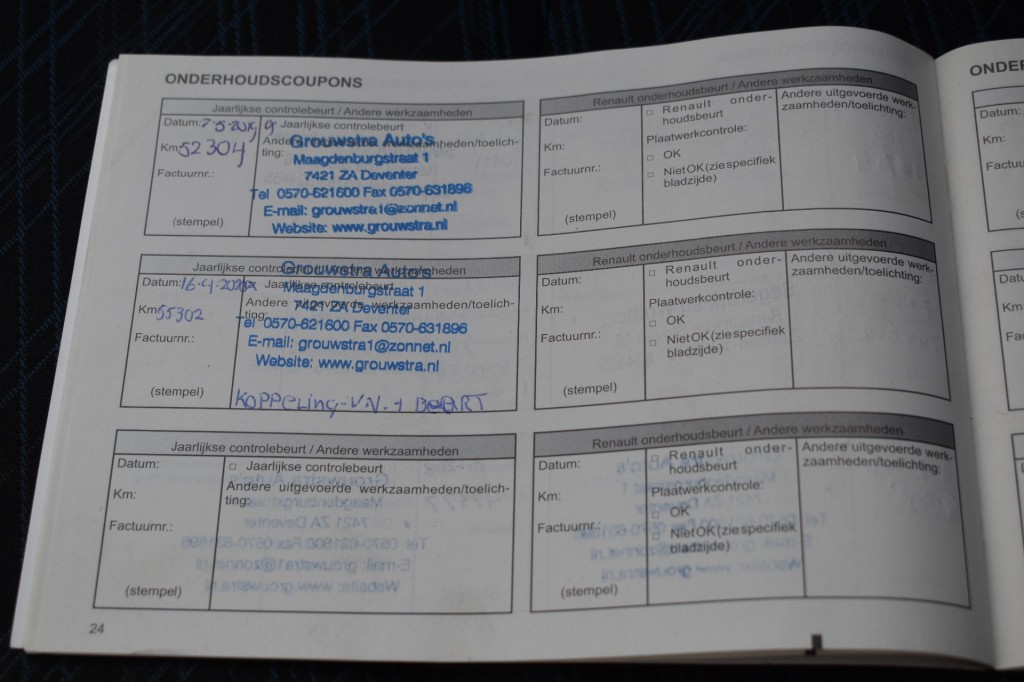 ONDERHOUDSCOUPONS
Jaarlijkse controlebeurt / Andere werkzaamheden
Datum: 7-5-2019
Jaarlijkse controlebeurt
Andere uitgevoerde werkzaamheden/toelich-
ting:
Km: 52304
Factuurnr.:
(stempel)
Grouwstra Auto's
Maagdenburgstraat 1
7421 ZA Deventer
Tel 0570-621600 Fax 0570-631896
E-mail: grouwstra1@zonnet.nl
Website: www.grouwstra.nl
Renault onderhoudsbeurt / Andere werkzaamheden
Datum:
Km:
Factuurnr.:
(stempel)
Renault onder-
houdsbeurt
Plaatwerkcontrole:
OK
Niet OK (zie specifiek
bladzijde)
Andere uitgevoerde werk-
zaamheden/toelichting:
Jaarlijkse controlebeurt / Andere werkzaamheden
Datum: 16-4-2020
Jaarlijkse controlebeurt
Andere uitgevoerde werkzaamheden/toelich-
ting:
Km 55302
Factuurnr.:
(stempel)
Grouwstra Auto's
Maagdenburgstraat 1
7421 ZA Deventer
Tel 0570-621600 Fax 0570-631896
E-mail: grouwstra1@zonnet.nl
Website: www.grouwstra.nl
KOPPELING-V.V. + BEURT
Renault onderhoudsbeurt / Andere werkzaamheden
Datum:
Km:
Factuurnr.:
(stempel)
Renault onder-
houdsbeurt
Plaatwerkcontrole:
OK
Niet OK (zie specifiek
bladzijde)
Andere uitgevoerde werk-
zaamheden/toelichting:
Jaarlijkse controlebeurt / Andere werkzaamheden
Datum:
Km:
Factuurnr.:
(stempel)
Jaarlijkse controlebeurt
Andere uitgevoerde werkzaamheden/toelich-
ting:
Renault onderhoudsbeurt / Andere werkzaamheden
Datum:
Km:
Factuurnr.:
(stempel)
Renault onder-
houdsbeurt
Plaatwerkcontrole:
OK
Niet OK (zie specifiek
bladzijde)
Andere uitgevoerde werk-
zaamheden/toelichting:
24